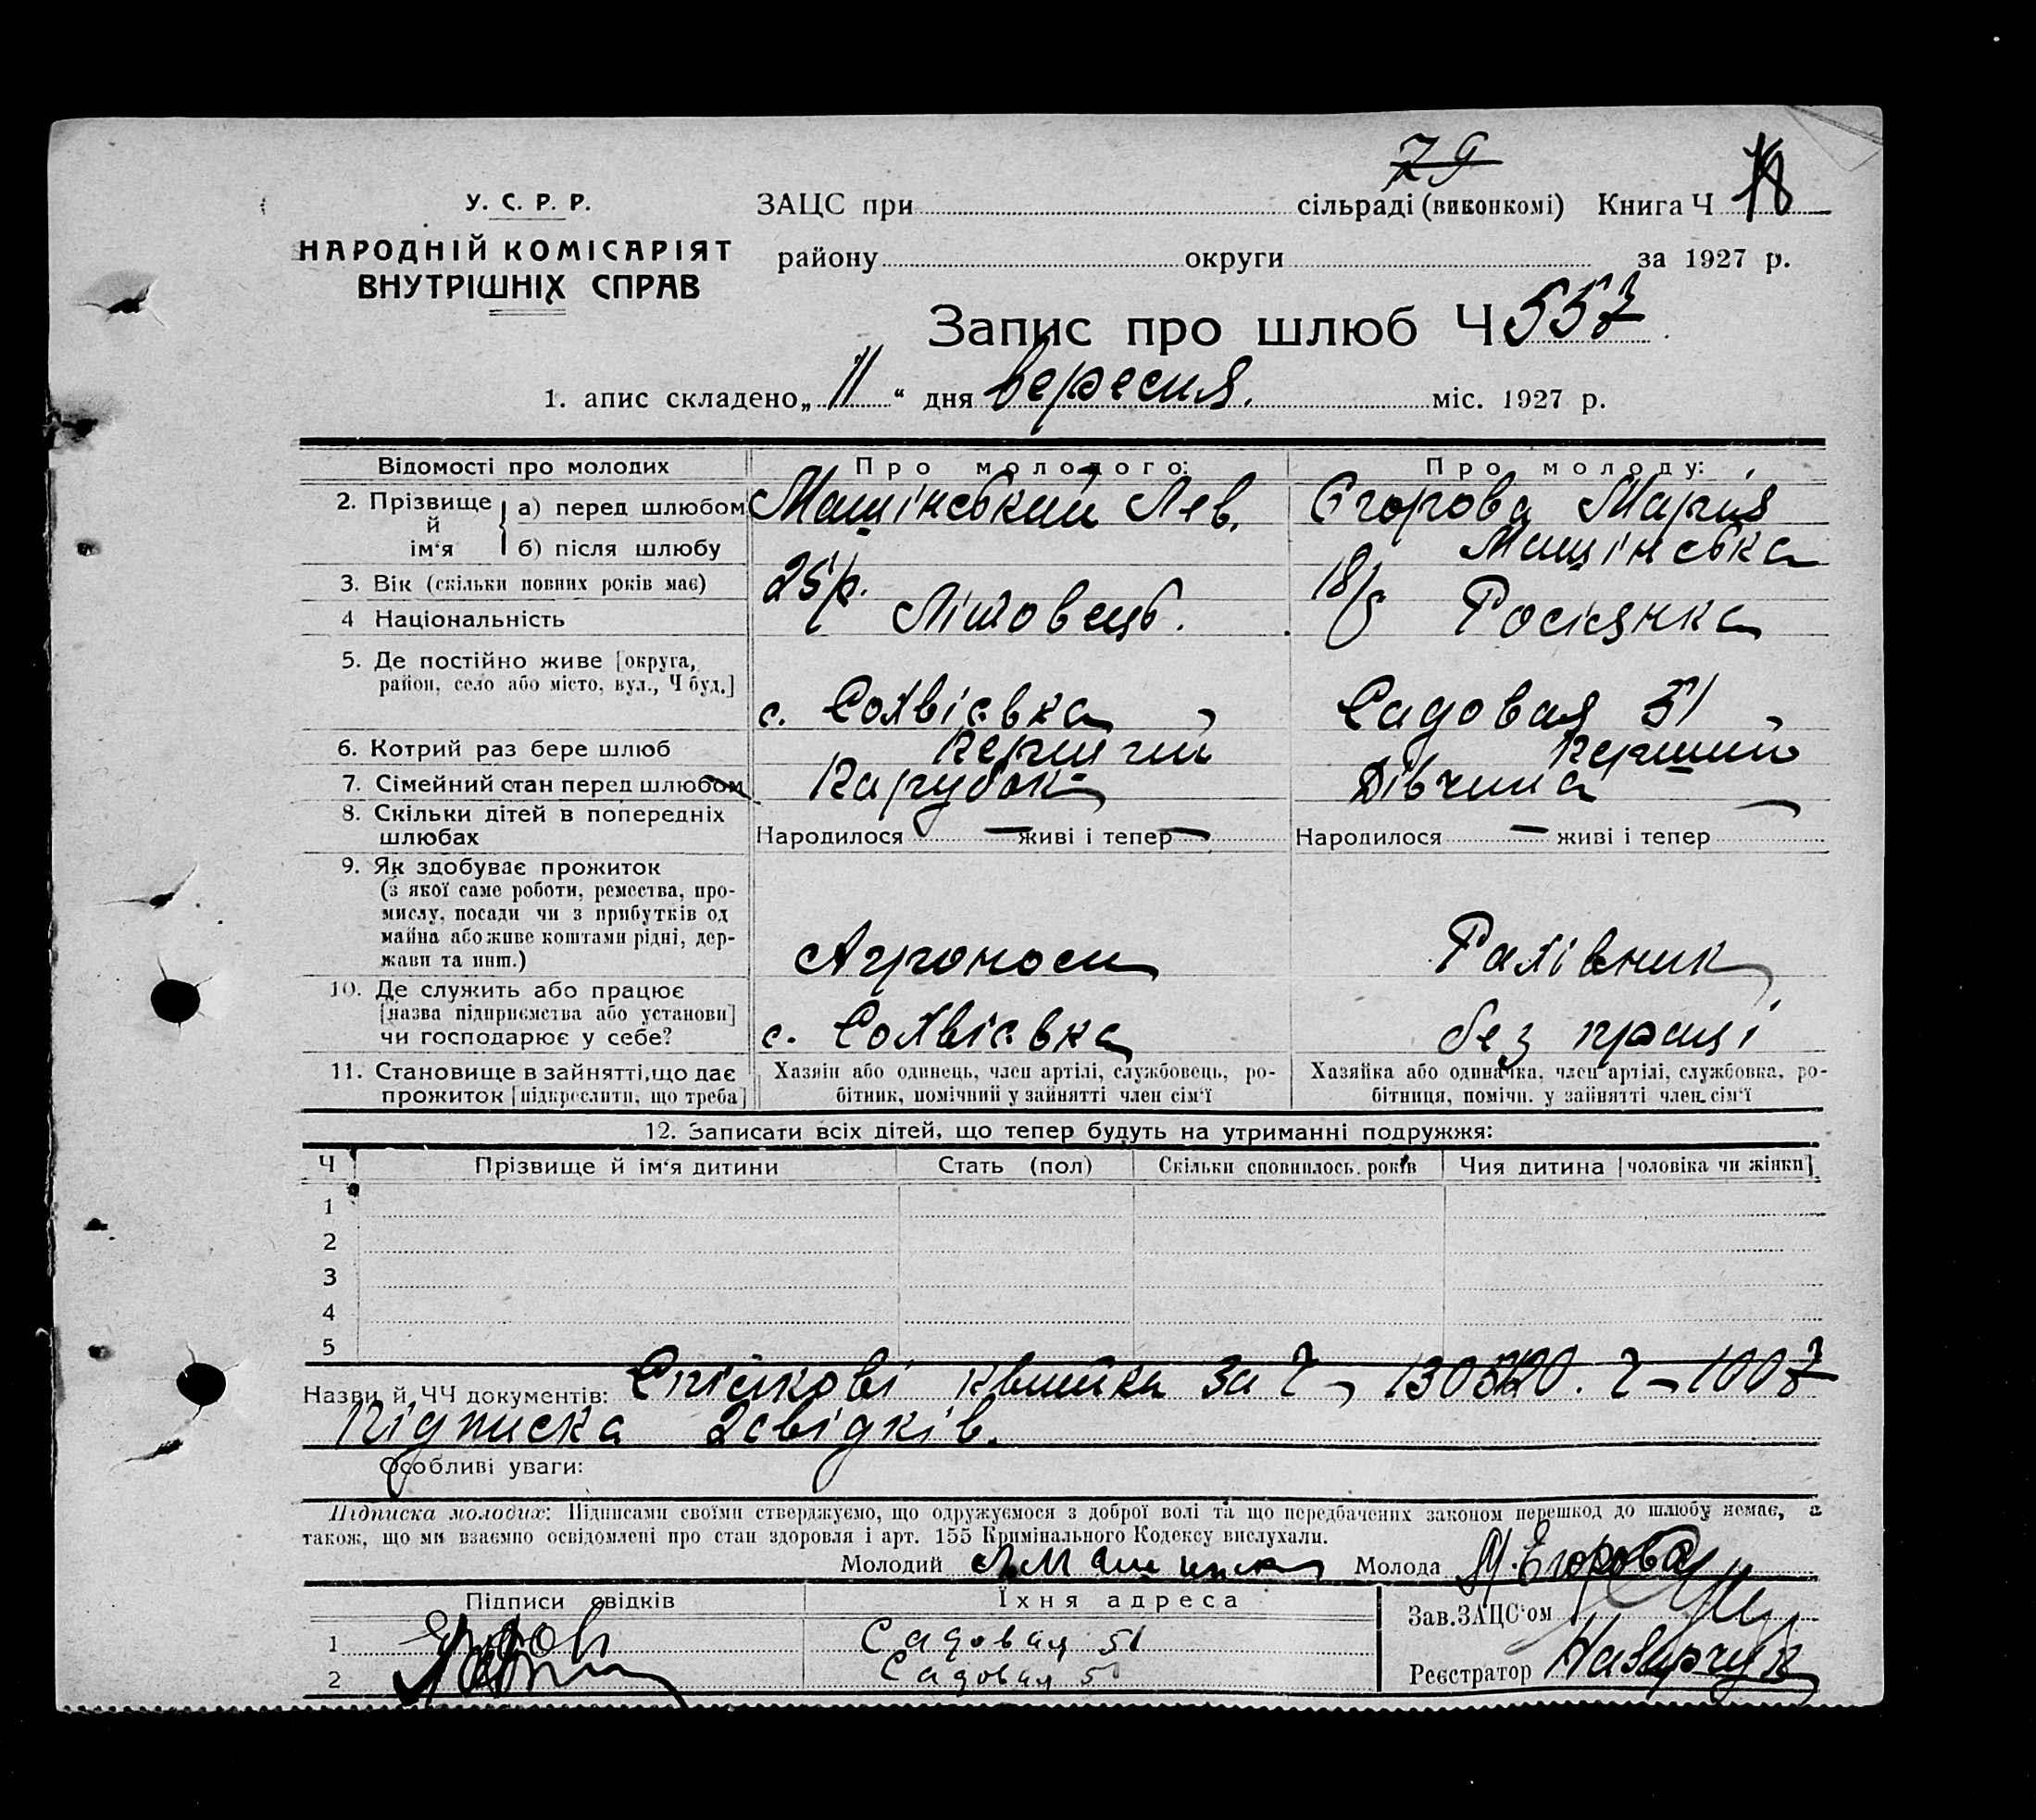 79
У. С. Р. Р.
НАРОДНІЙ КОМІСАРІЯТ
ВНУТРІШНІХ СПРАВ
ЗАЦС при сільраді (виконкомі) Книга Ч
району округи за 1927 р.
Запис про шлюб Ч 557
1. апис складено „ 11 “ дня вересня. міс. 1927 р.
Відомості про молодих Про молодого: Про молоду:
2. Прізвище й ім‘я а) перед шлюбом Машінський Лев. Єгорова Марія
б) після шлюбу Машінська
3. Вік (скільки повних років має) 25 р. 18
4 Національність Літовець. Росіянка
5. Де постійно живе [округа,
район, село або місто, вул., Ч буд.] с. Солвієвка Садовая 51
6. Котрий раз бере шлюб перший перший
7. Сімейний стан перед шлюбом Парубок Дівчина
8. Скільки дітей в попередніх
шлюбах Народилося — живі і тепер — Народилося — живі і тепер
9. Як здобуває прожиток
(з якої саме роботи, ремества, про-
мислу, посади чи з прибутків од
майна або живе коштами рідні, дер-
жави та инш.) Агроном Рахівник
10. Де служить або працює
[назва підприємства або установи]
чи господарює у себе? с. Солвієвка без праці
11. Становище в зайнятті, що дає
прожиток [підкреслити, що треба]
Хазяїн або одинець, член артілі, службовець, ро-
бітник, помічний у зайнятті член сім‘ї
Хазяйка або одиначка, член артілі, службовка, ро-
бітниця, помічн. у зайнятті член сім‘ї
12. Записати всіх дітей, що тепер будуть на утриманні подружжя:
Ч Прізвище й ім‘я дитини Стать (пол) Скільки сповнилось років Чия дитина [чоловіка чи жінки]
1
2
3
4
5
Назви й ЧЧ документів: Спілкові квитки за Ч – Ч – 1007
Підписка 2 свідків.
Особливі уваги:
Підписка молодих: Підписами своїми стверджуємо, що одружуємося з доброї волі та що передбачених законом перешкод до шлюбу немає, а
також, що ми взаємно освідомлені про стан здоровля і арт. 155 Кримінального Кодексу вислухали.
Молодий Молода М. Егорова
Підписи свідків Їхня адреса Зав. ЗАЦС‘ом
1 Садовая 51
2 Садовая 5
Реєстратор Назарчук